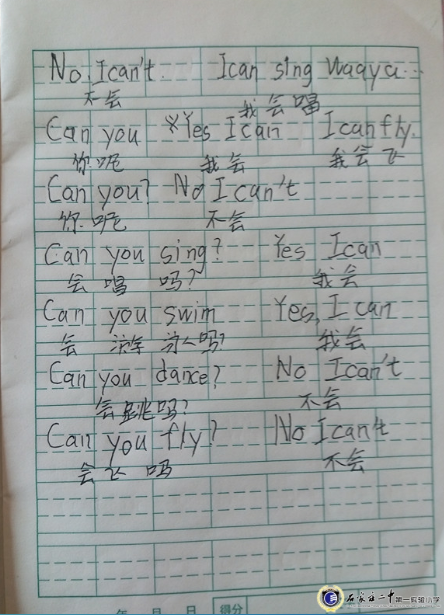 No, Ican't. Ican sing waqya..
不会 我会唱
Can you *Yes Ican Ican fly.
你呢 我会 我会飞
Can you? No Ican't
你呢 不会
Can you sing? Yes Ican
会唱吗? 我会
Can you swim Yes, I can
会 吗? 我会
Can you dance? No Ican't
会跳吗? 不会
Can you fly? No Ican't
会飞吗 不会
年 月 日 得分
石家庄二中 第一实验小学